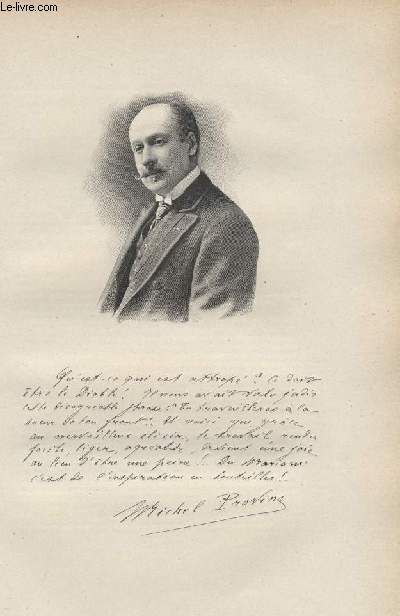 © Le-livre.com
Qu'est-ce qui est attrapé? Ce doit
être le Diable! Il nous avait valu jadis
cette désagréable phrase: "Tu travailleras à la
sueur de ton front". Et voici que grâce
au merveilleux élixir, le travail, rendu
facile, léger, agréable, devient une joie
au lieu d'être une peine!! Du Mariani
c'est de l'inspiration en bouteilles!
Michel Provins